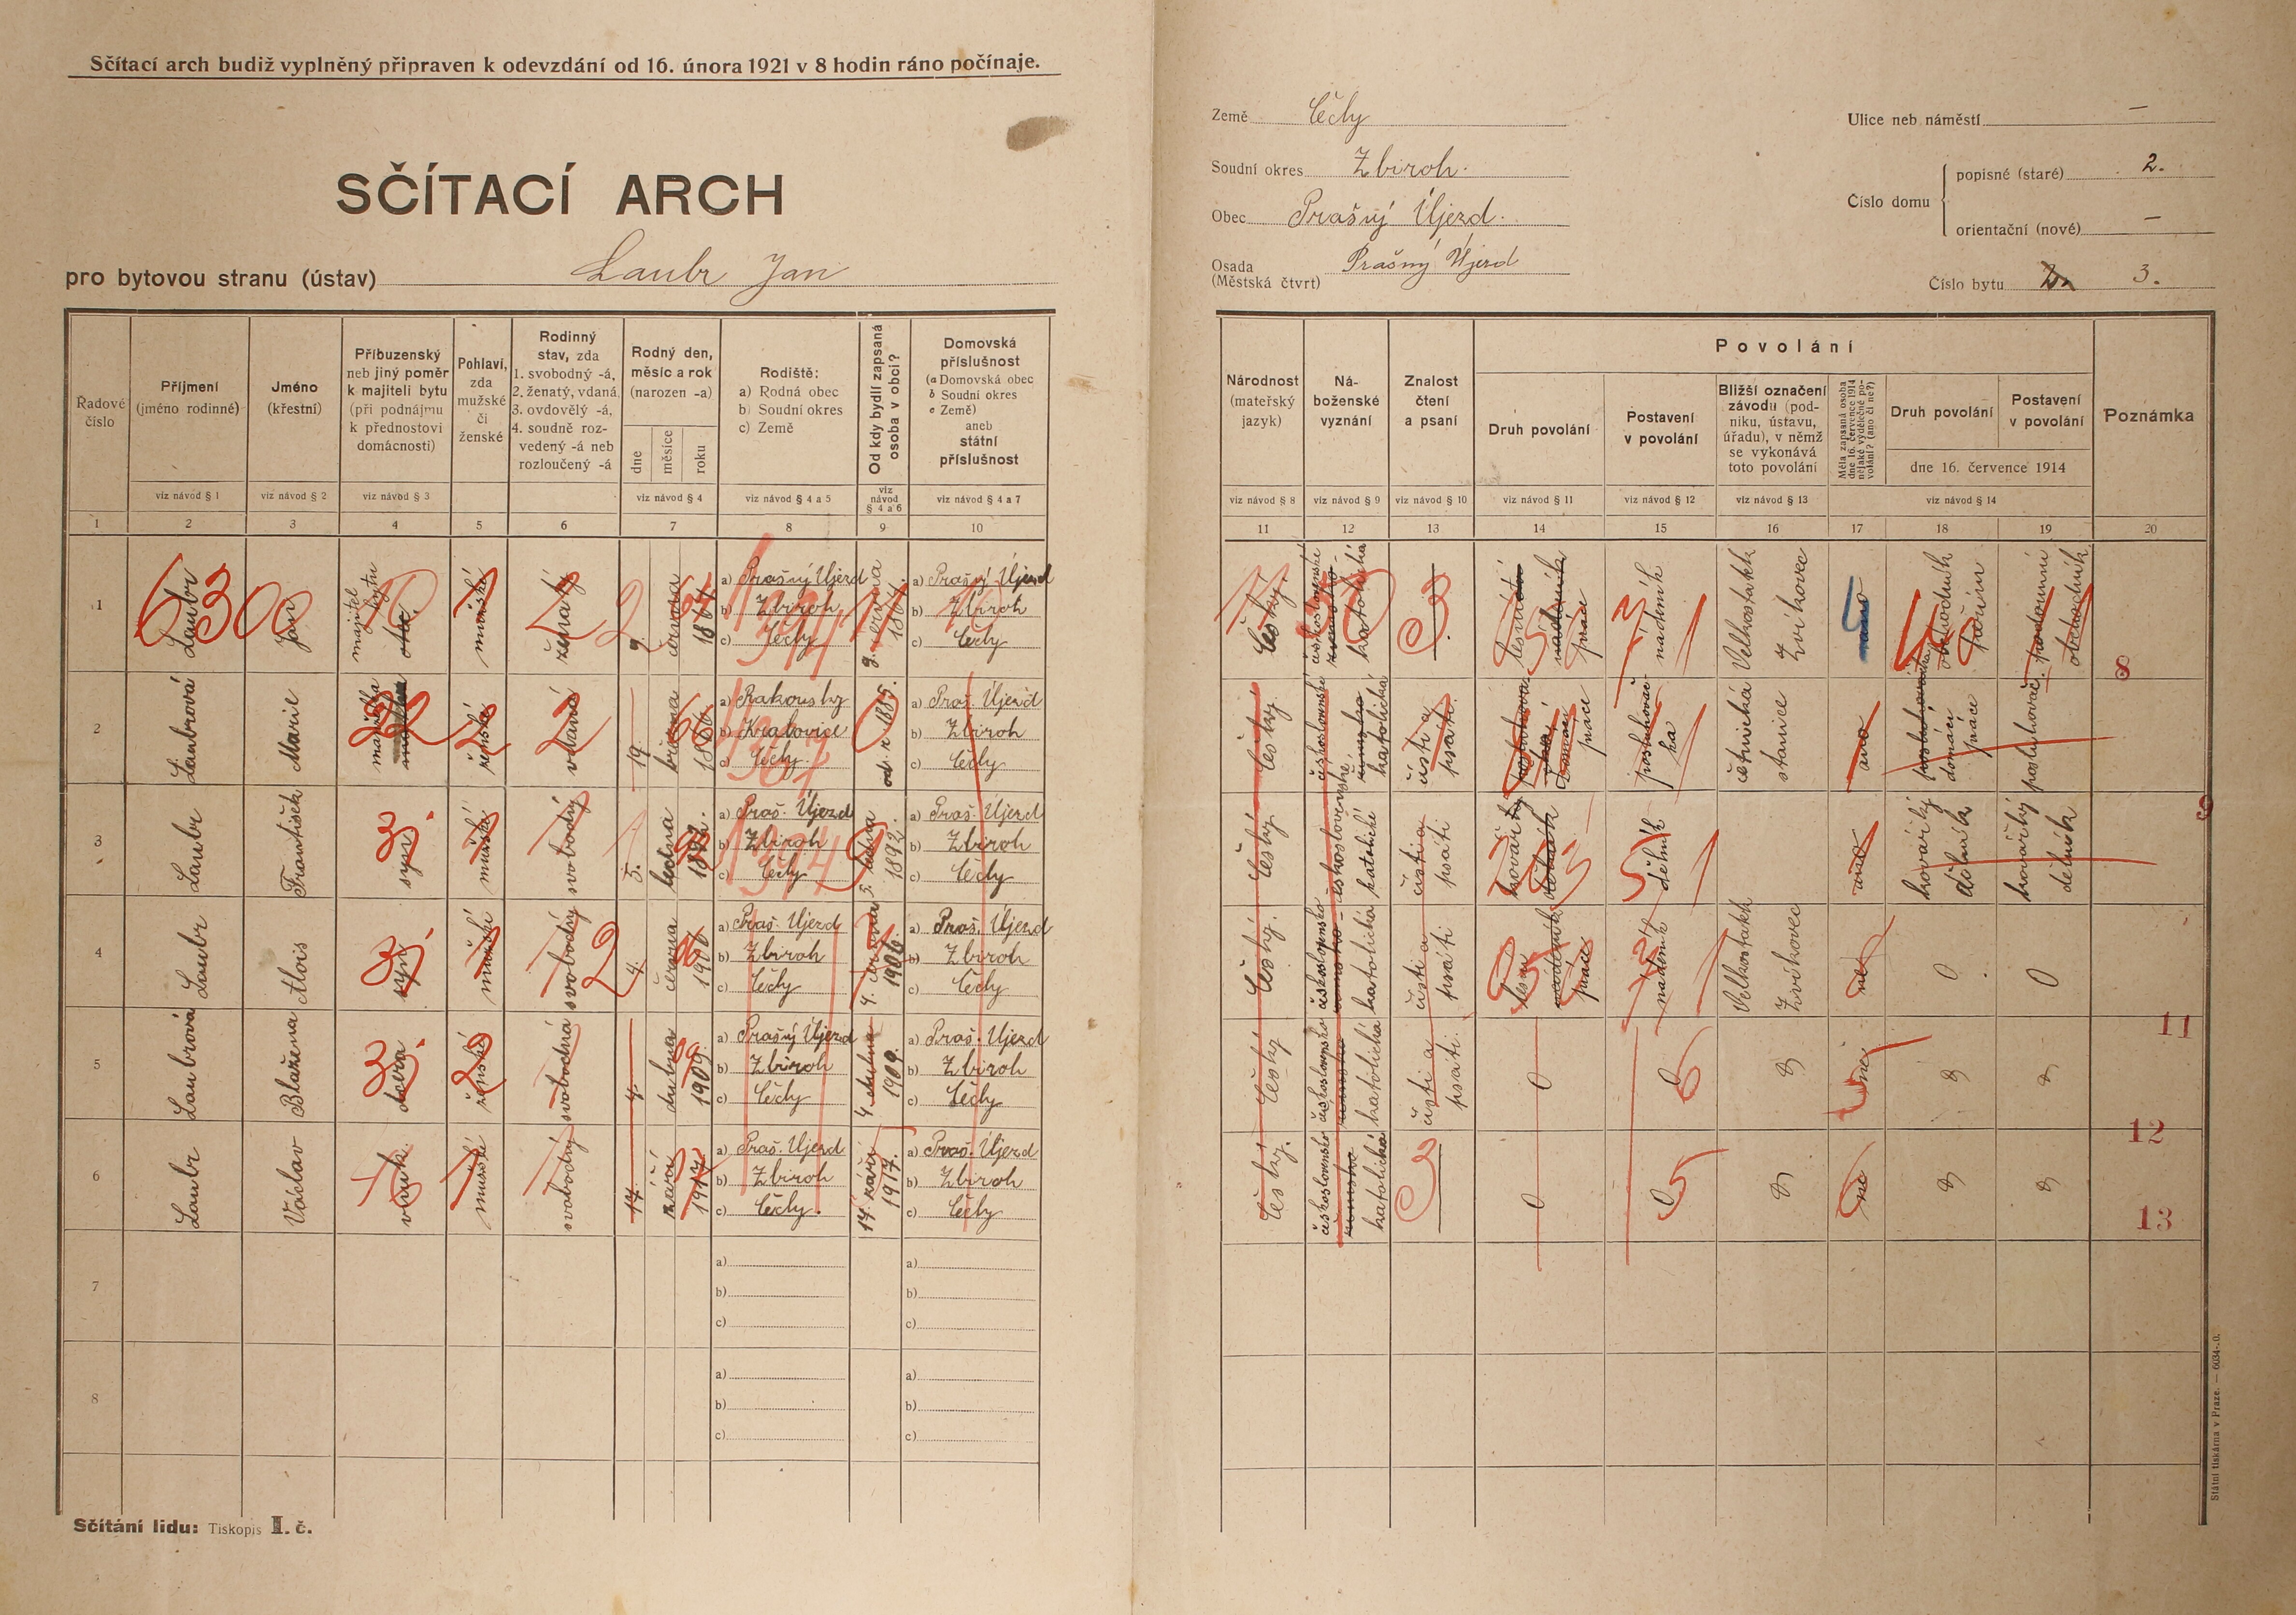 Sčítací arch budiž vyplněný připraven k odevzdání od 16. února 1921 v 8 hodin ráno počínaje.
SČÍTACÍ ARCH
pro bytovou stranu (ústav) Laubr Jan
Země Čechy
Soudní okres Zbiroh.
Obec Prašný Újezd.
Osada Prašný Újezd
(Městská čtvrt)
Ulice neb náměstí —
Číslo domu
popisné (staré) 2.
orientační (nové) —
Číslo bytu 3.
Řadové číslo
Příjmení (jméno rodinné)
Jméno (křestní)
Příbuzenský neb jiný poměr k majiteli bytu (při podnájmu k přednostovi domácnosti)
Pohlaví, zda mužské či ženské
Rodinný stav, zda 1. svobodný -á, 2. ženatý, vdaná, 3. ovdovělý -á, 4. soudně rozvedený -á neb rozloučený -á
Rodný den, měsíc a rok (narozen -a)
dne
měsíce
roku
Rodiště: a) Rodná obec b) Soudní okres c) Země
Od kdy bydlí zapsaná osoba v obci?
Domovská příslušnost (a Domovská obec b Soudní okres c Země) aneb státní příslušnost
viz návod § 1
viz návod § 2
viz návod § 3
viz návod § 4
viz návod § 4 a 5
viz návod § 4 a 6
viz návod § 4 a 7
1 2 3 4 5 6 7 8 9 10
Národnost (mateřský jazyk)
Náboženské vyznání
Znalost čtení a psaní
Povolání
Druh povolání
Postavení v povolání
Bližší označení závodu (podniku, ústavu, úřadu), v němž se vykonává toto povolání
Měla zapsaná osoba dne 16. července 1914 nějaké výdělečné povolání? (ano či ne?)
Druh povolání
Postavení v povolání
dne 16. července 1914
Poznámka
viz návod § 8
viz návod § 9
viz návod § 10
viz návod § 11
viz návod § 12
viz návod § 13
viz návod § 14
11 12 13 14 15 16 17 18 19 20
1
630
Laubr
Jan
majitel bytu
mužské
ženatý
9.
června
1864
a) Prašný Újezd
b) Zbiroh
c) Čechy
9. června 1864.
a) Prašný Újezd
b) Zbiroh
c) Čechy
český.
československé
katolická
nádeník
Velkostatek Zvíkovec
ano
obchodník
podomní obchodník
8
2
Laubrová
Marie
manželka
ženské
vdaná
19.
března
1866
a) Rakousky
b) Kralovice
c) Čechy.
od r. 1885.
a) Praš. Újezd
b) Zbiroh
c) Čechy
český.
československé
katolická
čísti a psáti.
domácí práce
posluhovačka
četnická stanice
ano
domácí práce
posluhovač.
9
3
Laubr
František
syn
mužské
svobodný
5.
ledna
1892.
a) Praš. Újezd
b) Zbiroh
c) Čechy
5. ledna 1892.
a) Praš. Újezd
b) Zbiroh
c) Čechy
český
československé
katolické
čísti a psáti
dělník
ano
kovářský dělník
kovářský dělník
4
Laubr
Alois
syn
mužské
svobodný
4.
června
1906
a) Praš. Újezd
b) Zbiroh
c) Čechy
4. června 1906.
a) Praš. Újezd
b) Zbiroh
c) Čechy
český.
československo
katolická
čísti a psáti
lesní práce
nádeník
Velkostatek Zvíkovec
ne
0
0
11
5
Laubrová
Blažena
dcera
ženské
svobodná
4.
dubna
1909
a) Prašný Újezd
b) Zbiroh
c) Čechy
4. dubna 1909.
a) Praš. Újezd
b) Zbiroh
c) Čechy
český
československo
katolická
čísti a psáti.
0
0
ne
12
6
Laubr
Václav
vnuk
mužské
svobodný
17.
září
1917
a) Praš. Újezd
b) Zbiroh
c) Čechy.
17. září 1917.
a) Praš. Újezd
b) Zbiroh
c) Čechy
český.
československo
katolická
0
0
ne
13
7
a)
b)
c)
a)
b)
c)
8
a)
b)
c)
a)
b)
c)
Sčítání lidu: Tiskopis I. č.
Státní tiskárna v Praze. — 6034-.0.